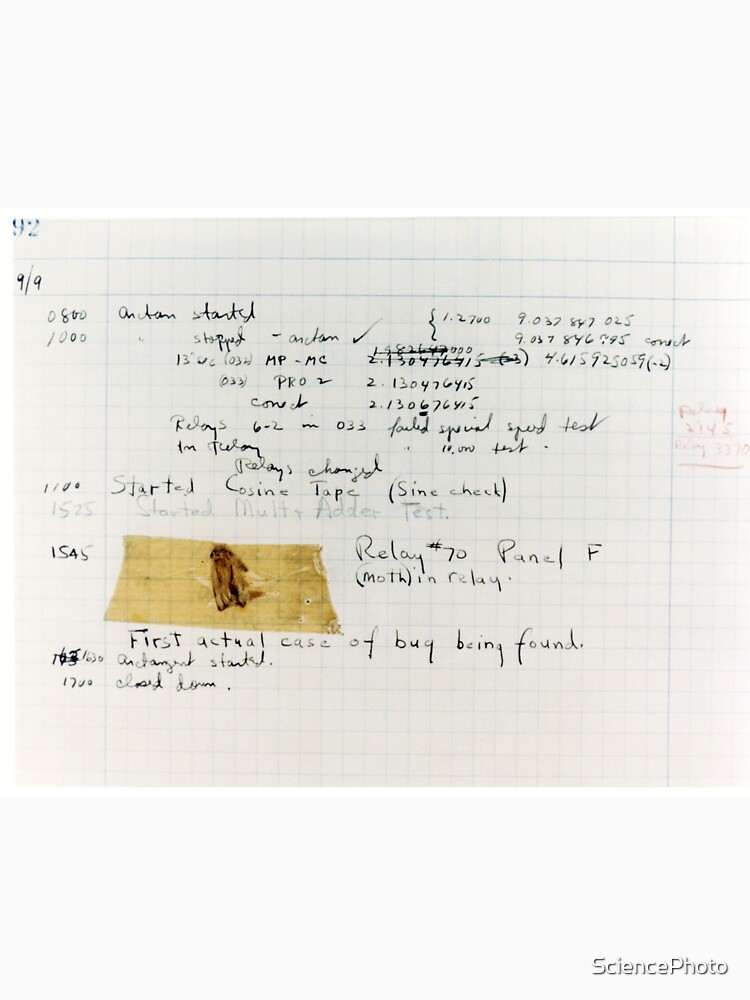 92
9/9
0800 arctan started { 1.2700 9.037 847 025
1000 " stopped - arctan ✓ 9.037 846 995 correct
13"uc (032) MP - MC 2.130476415 (-3) 4.615925059(-2)
(033) PRO 2 2.130476415
correct 2.130676415
Relays 6-2 in 033 failed special speed test
In Relay " 10,000 test .
Relays changed
Relay
2145
Relay 3370
1100 Started Cosine Tape (Sine check)
1525 Started Mult + Adder Test.
1545 Relay #70 Panel F
(moth) in relay.
First actual case of bug being found.
1630 arctangent started.
1700 closed down.
SciencePhoto